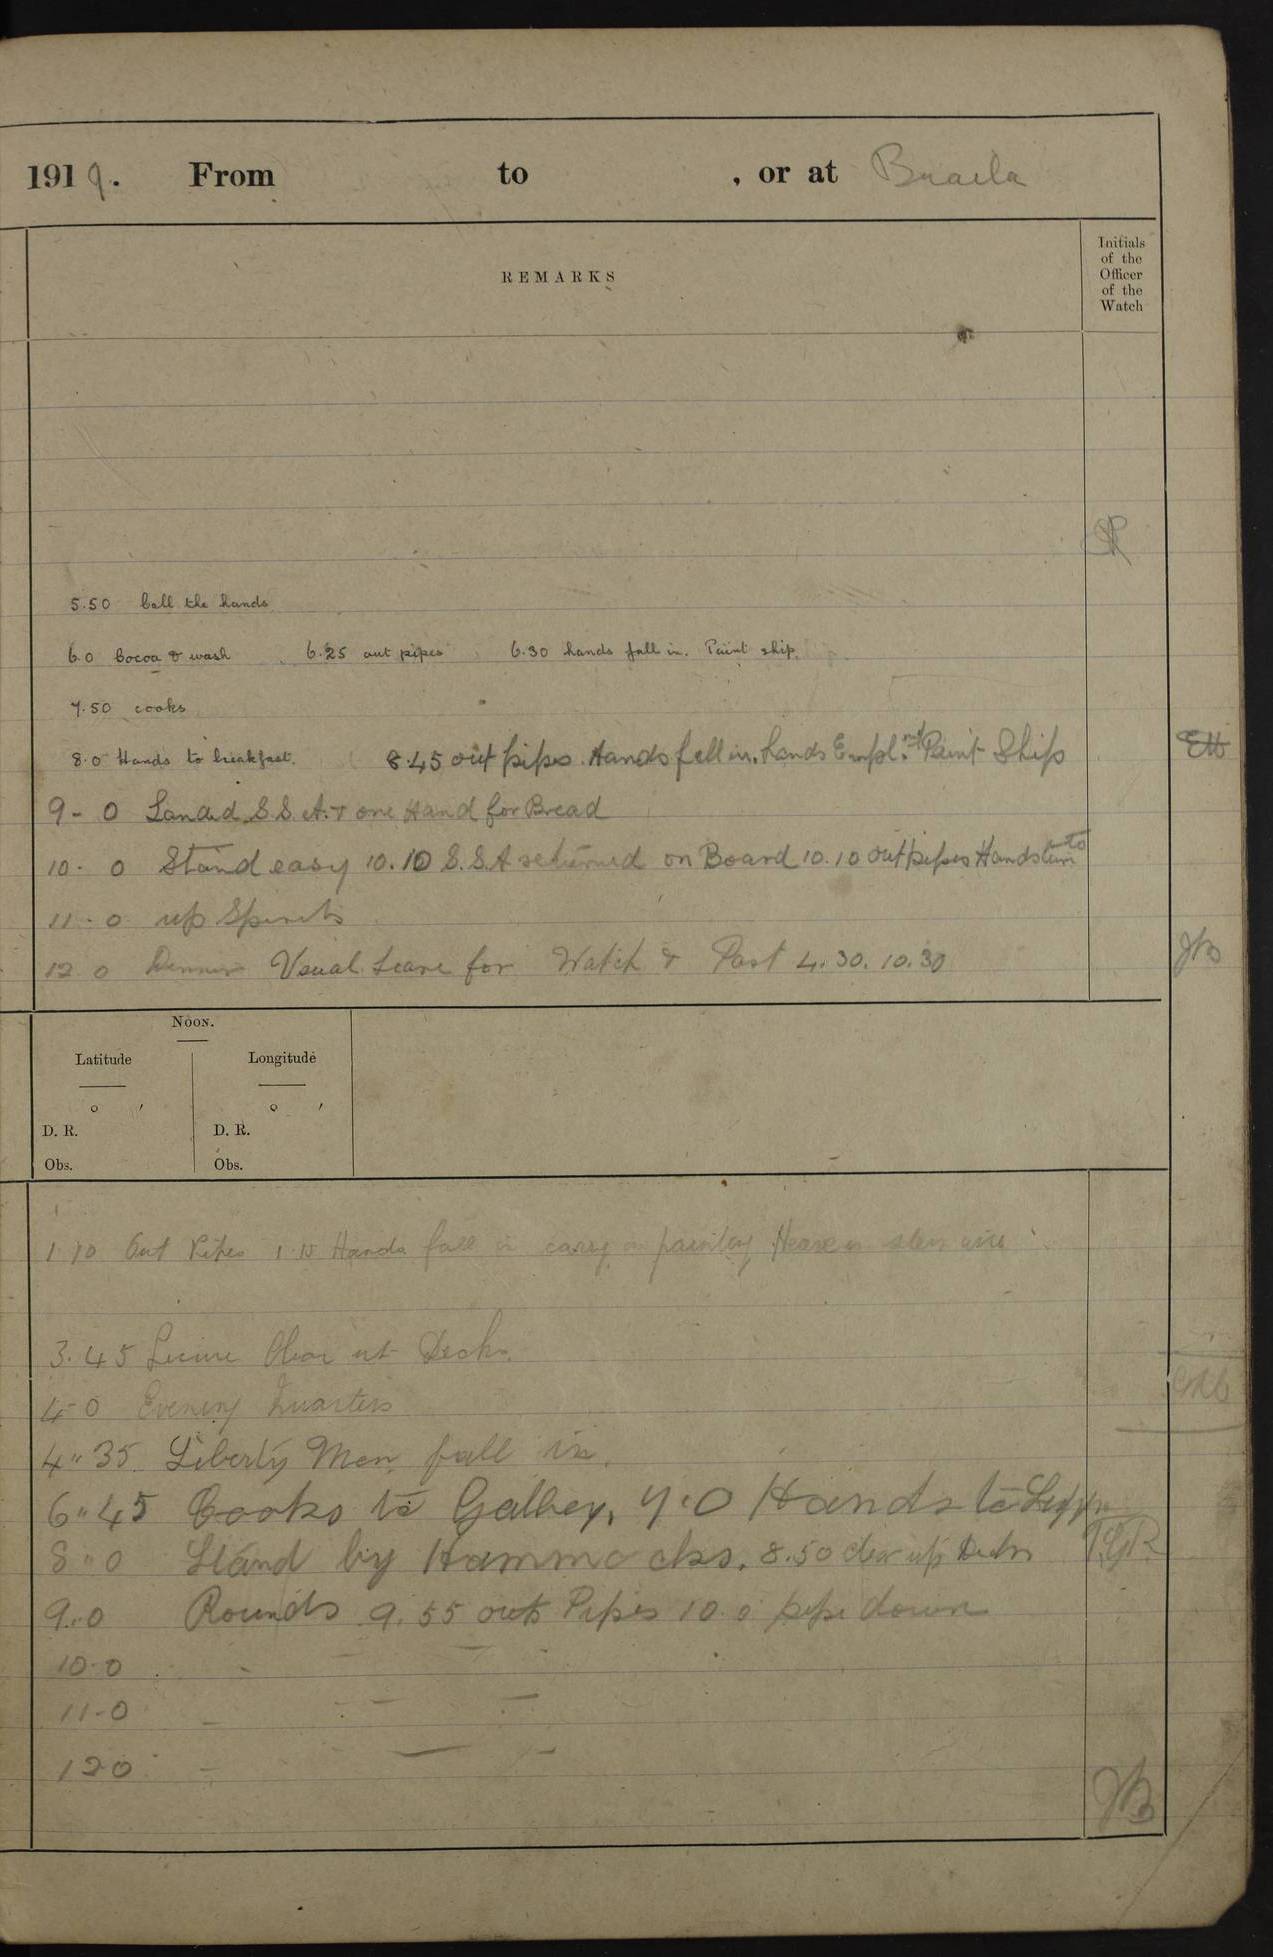 1919. From to , or at Braila
REMARKS
Initials
of the
Officer
of the
Watch
5.50 Call the hands
6.0 Cocoa & wash 6.25 out pipes 6.30 hands fall in. Paint ship.
7.50 cooks
8.0 Hands to breakfast. 8.45 out pipes. Hands fell in. hands Empl. Paint Ship
9-0 Landed S.S.A. & one Hand for Bread
10.0 Stand easy 10.10 S.S.A returned on Board 10.10 out pipes Hands
11.0 up Spirits
12 0 Dinner Usual Leave for Watch & Part 4.30. 10.30
JB
Noon.
Latitude Longitude
° ′ ° ′
D. R. D. R.
Obs. Obs.
1.10 Out Pipes 1.15 Hands fall in carry on painting
3.45 Clear up Decks.
4-0 Evening Quarters
4"35 Liberty Men fall in.
6"45 Cooks to Galley, 7.0 Hands to Supper
8"0 Stand by Hammocks. 8.50 clear up Decks
9.0 Rounds 9.55 out Pipes 10.0 pipe down
10.0
11-0
120
JB